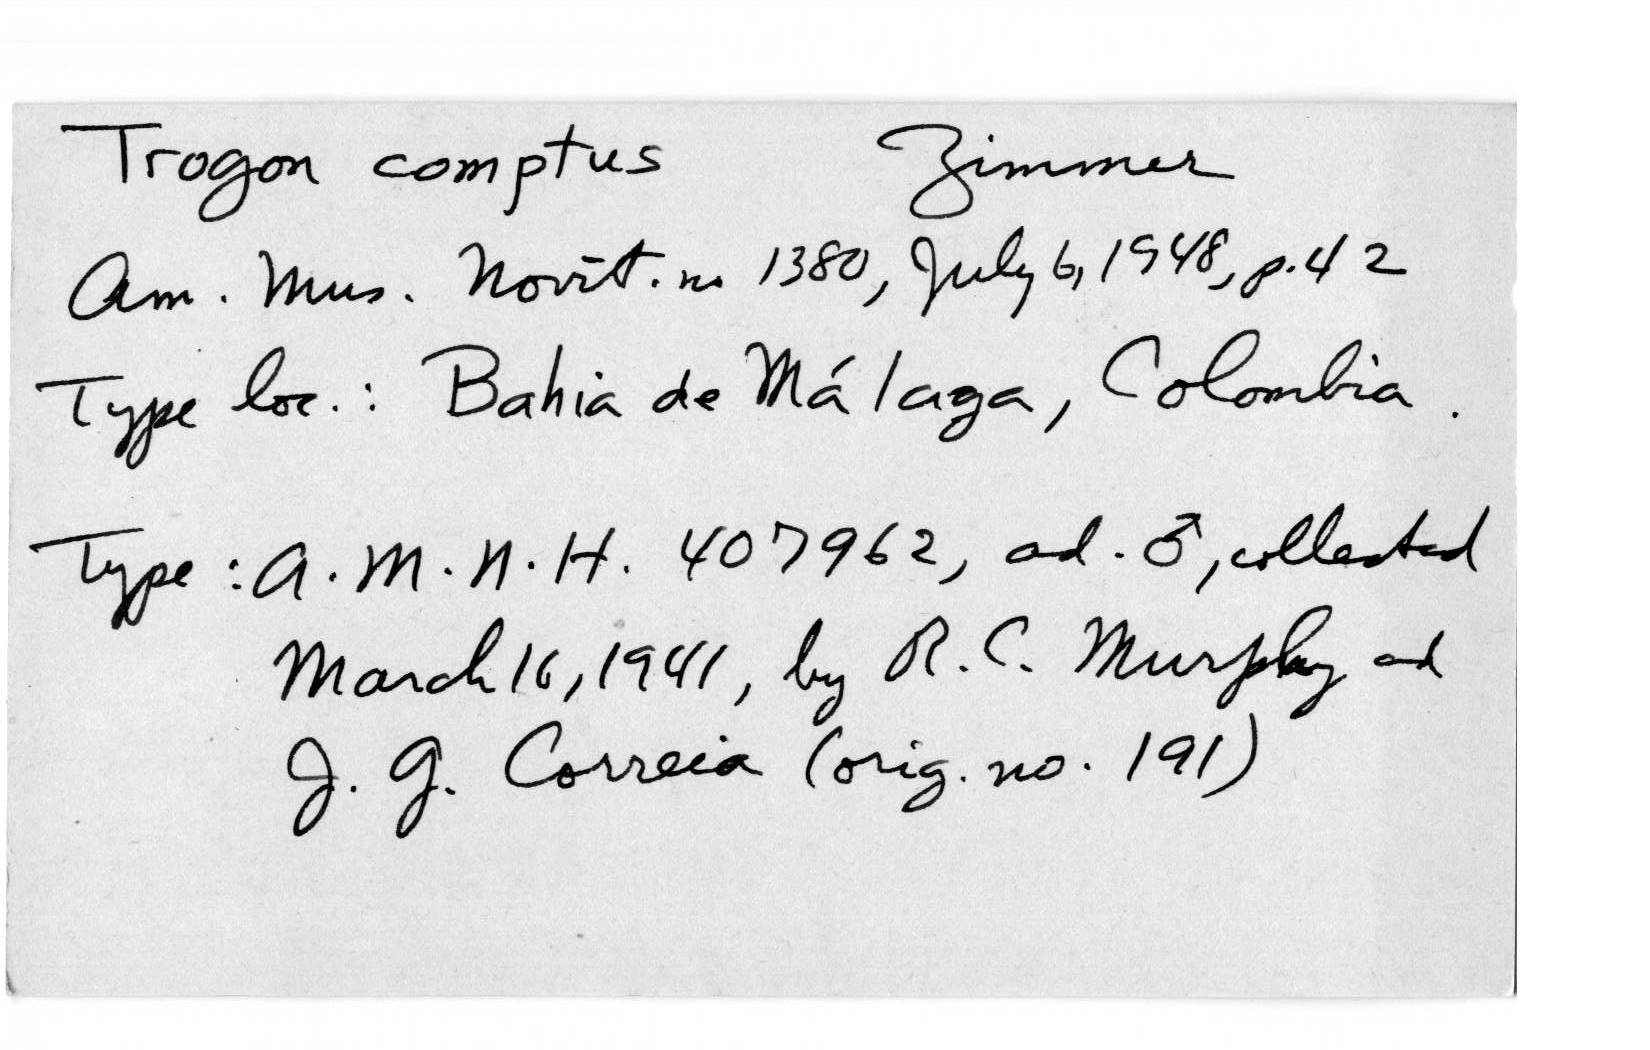 Trogon comptus Zimmer
Am. Mus. Novit. no 1380, July 6, 1948, p. 42
Type loc.: Bahia de Málaga, Colombia.
Type: A.M.N.H. 407962, ad. ♂, collected
March 16, 1941, by R.C. Murphy and
J. G. Correia (orig. no. 191)